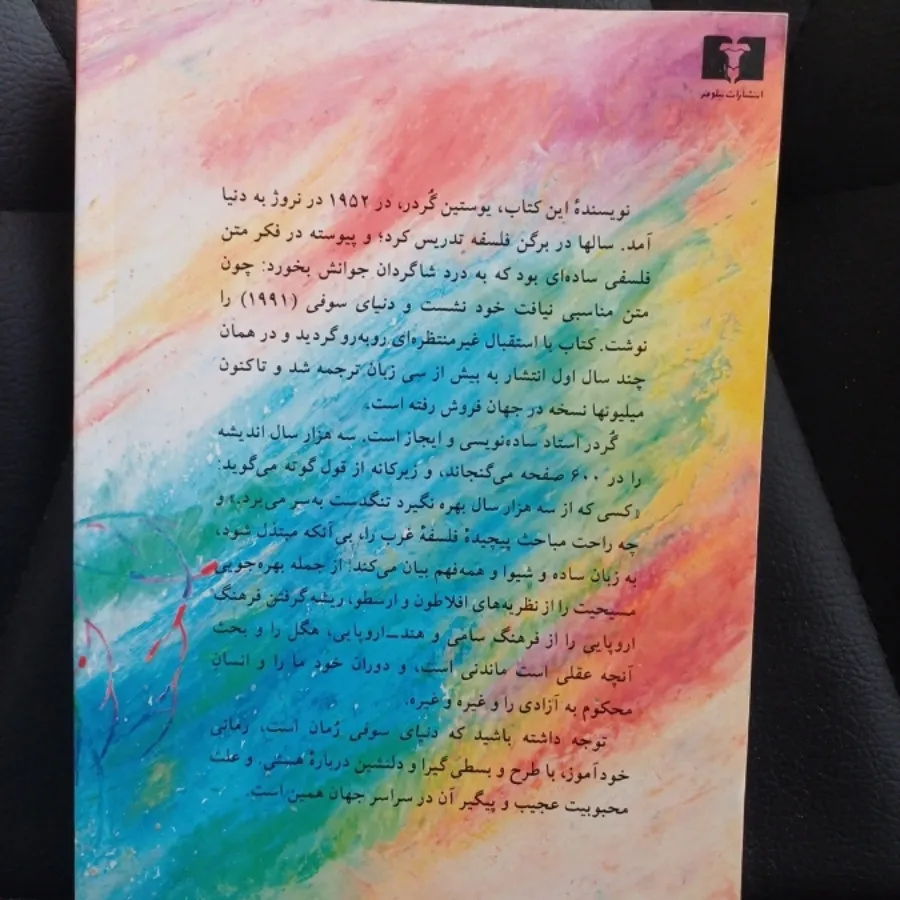 انتشارات نیلوفر
نویسندهٔ این کتاب، یوستین گُردر، در ۱۹۵۲ در نروژ به دنیا
آمد. سالها در برگن فلسفه تدریس کرد؛ و پیوسته در فکر متن
فلسفی ساده‌ای بود که به درد شاگردان جوانش بخورد: چون
متن مناسبی نیافت خود نشست و دنیای سوفی (۱۹۹۱) را
نوشت. کتاب با استقبال غیرمنتظره‌ای روبه‌رو گردید و در همان
چند سال اول انتشار به بیش از سی زبان ترجمه شد و تاکنون
میلیونها نسخه در جهان فروش رفته است.
گُردر استاد ساده‌نویسی و ایجاز است. سه هزار سال اندیشه
را در ۶۰۰ صفحه می‌گنجاند، و زیرکانه از قول گوته می‌گوید:
«کسی که از سه هزار سال بهره نگیرد تنگدست به‌سر می‌برد.» و
چه راحت مباحث پیچیدهٔ فلسفهٔ غرب را، بی‌آنکه مبتذل شود،
به زبان ساده و شیوا و همه‌فهم بیان می‌کند؛ از جمله بهره‌جویی
مسیحیت را از نظریه‌های افلاطون و ارسطو، ریشه گرفتن فرهنگ
اروپایی را از فرهنگ سامی و هند–اروپایی، هگل را و بحث
آنچه عقلی است ماندنی است، و دوران خود ما را و انسان
محکوم به آزادی را و غیره و غیره.
توجه داشته باشید که دنیای سوفی رُمان است، رمانی
خودآموز، با طرح و بسطی گیرا و دلنشین دربارهٔ هستی. و علت
محبوبیت عجیب و پیگیر آن در سراسر جهان همین است.